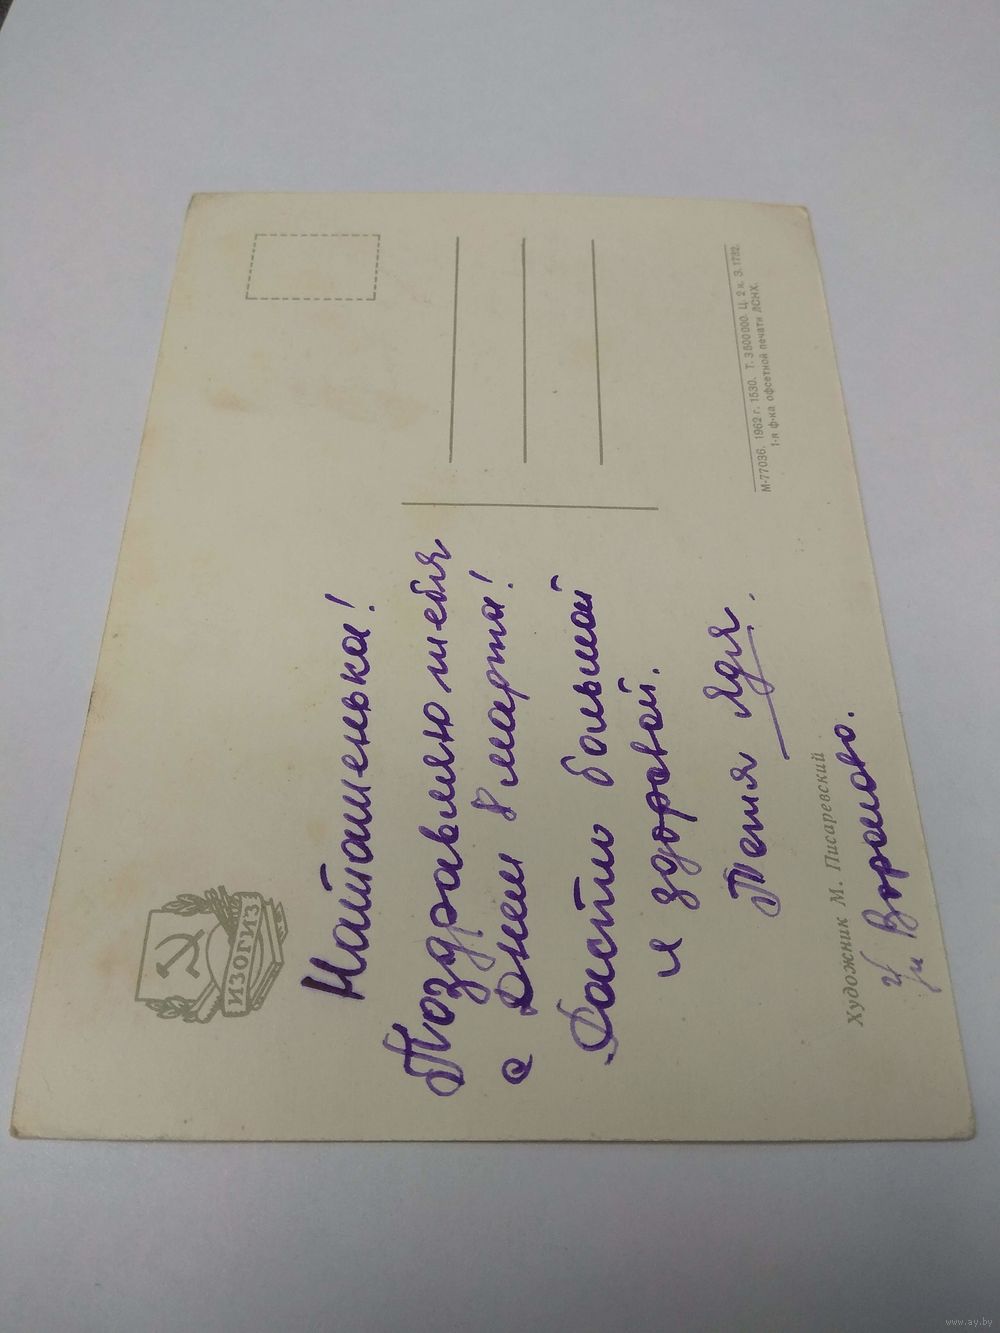 ИЗОГИЗ
Наташенька!
Поздравляю тебя
с Днем 8 марта!
Расти большой
и здоровой.
Тетя Ядя.
Художник М. Писаревский
Вороново.
М-77036. 1962 г. 1530. Т. 3 500 000. Ц. 2 к. З. 1732.
1-я ф-ка офсетной печати ЛСНХ.
www.ay.by